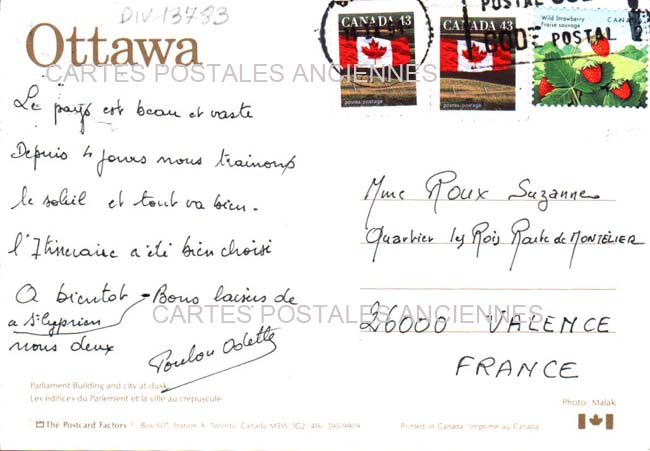 DIV-13783
Ottawa
CANADA 43
postes/postage
CANADA 43
postes/postage
Wild Strawberry
Fraise sauvage
CANA
POSTAL
CODE POSTAL
CARTES POSTALES ANCIENNES
Le pays est beau et vaste
Depuis 4 jours nous trainons
le soleil et tout va bien.
l'Itineraire a été bien choisi
A bientot - Bons baisers de
a St Cyprien
nous deux
Poulou Odette
Mme Roux Suzanne
Quartier les Rois Route de MONTELIER
26000 VALENCE
FRANCE
CARTES POSTALES ANCIENNES
Parliament Building and city at dusk
Les édifices du Parlement et la ville au crépuscule
Photo: Malak
The Postcard Factory Box 607 Station A, Toronto, Canada M5W 1G2 416 595-9909
Printed in Canada / Imprimé au Canada